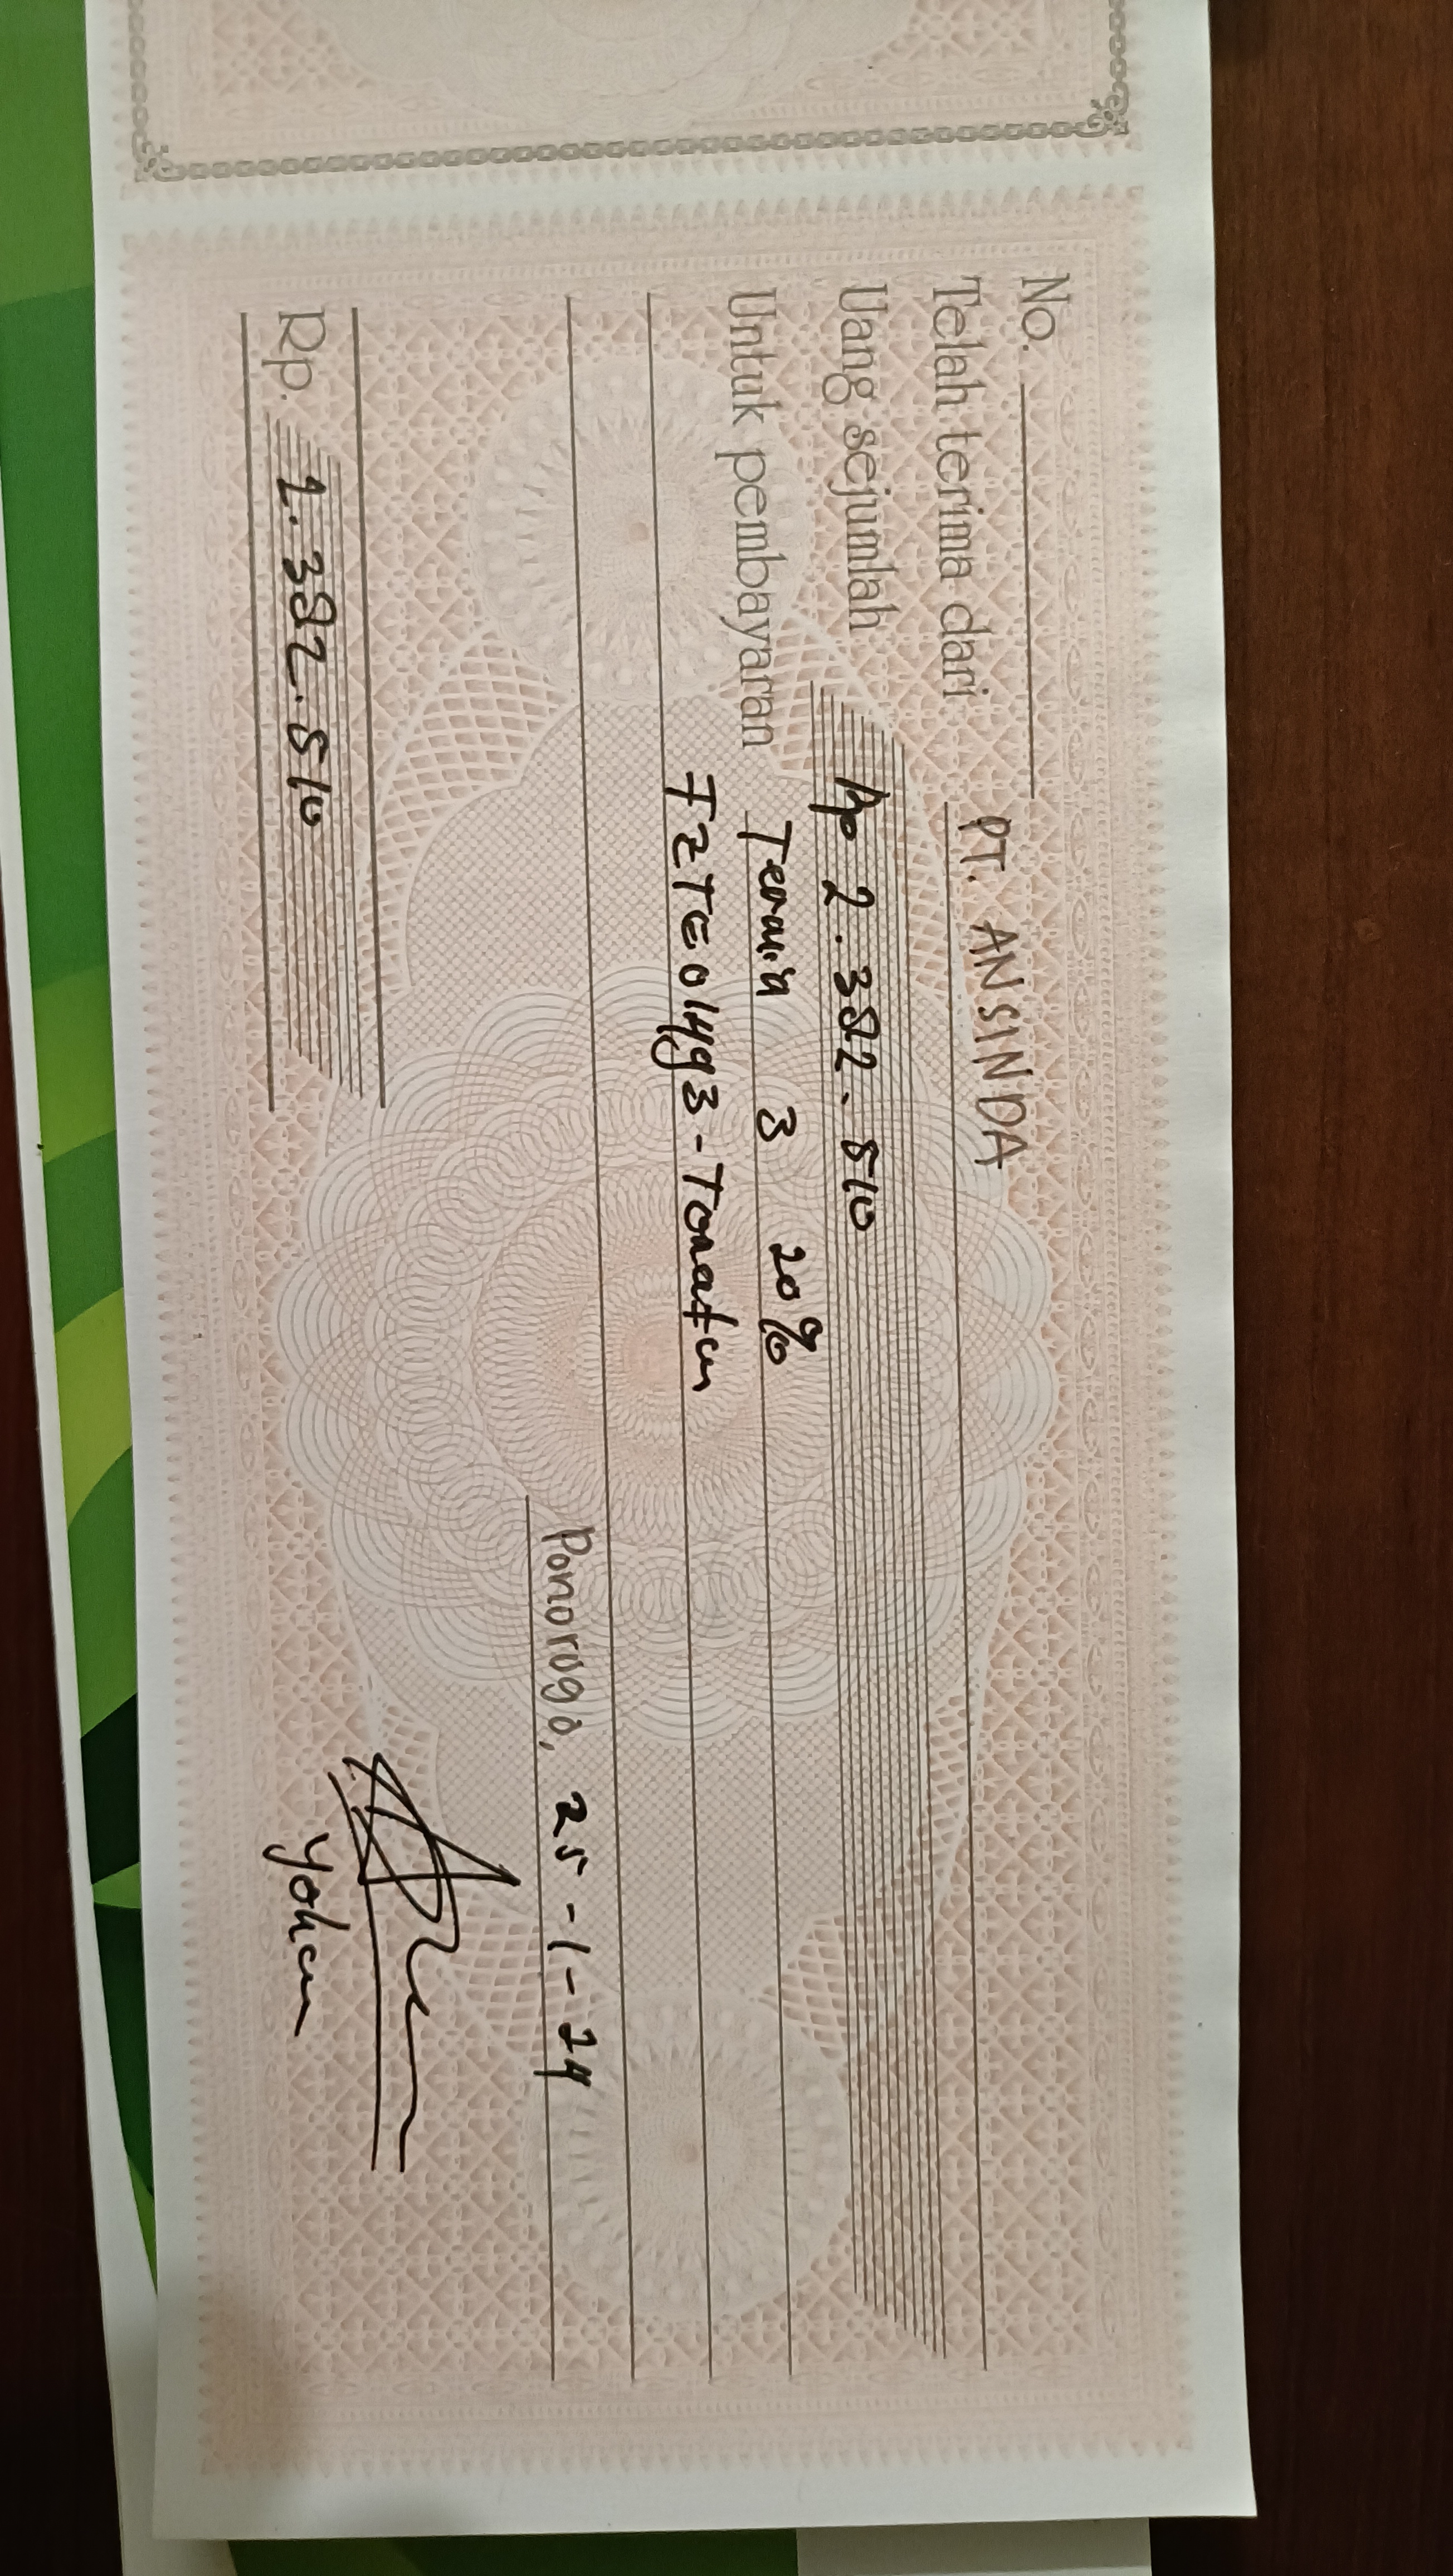 No.
Telah terima dari PT. ANSINDA
Uang sejumlah Rp 2.382.510
Untuk pembayaran Termin 3 20%
FZTE01493 - Tonatan
Ponorogo, 25-1-24
Rp. 2.382.510
Yohan